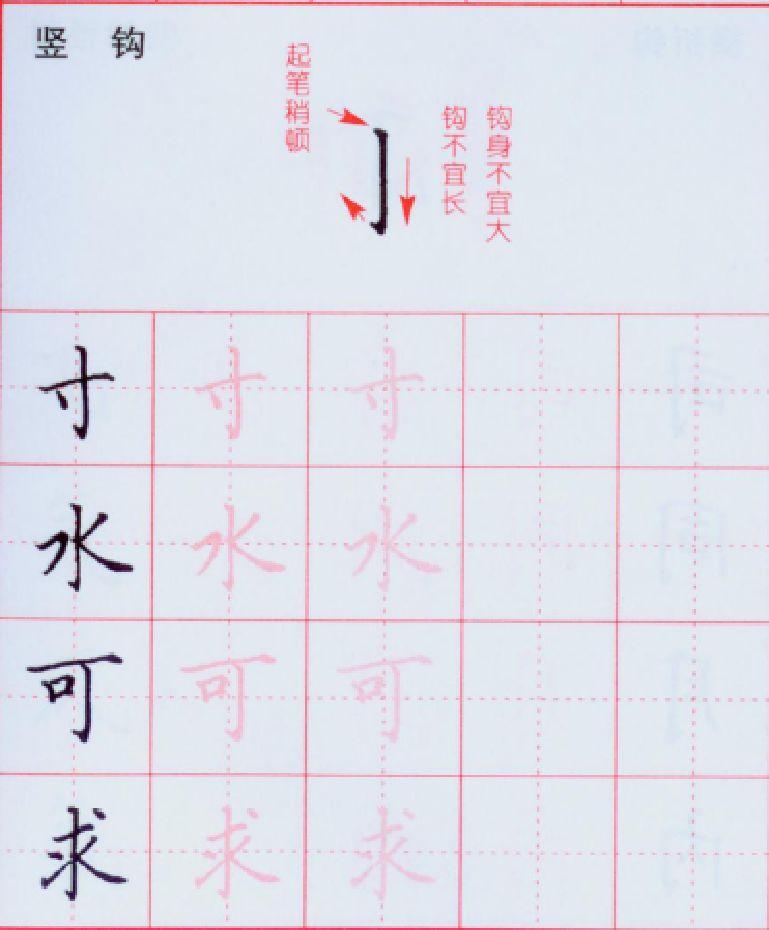 竖 钩
起笔稍顿
钩身不宜大
钩不宜长
寸 寸 寸
水 水 水
可 可 可
求 求 求